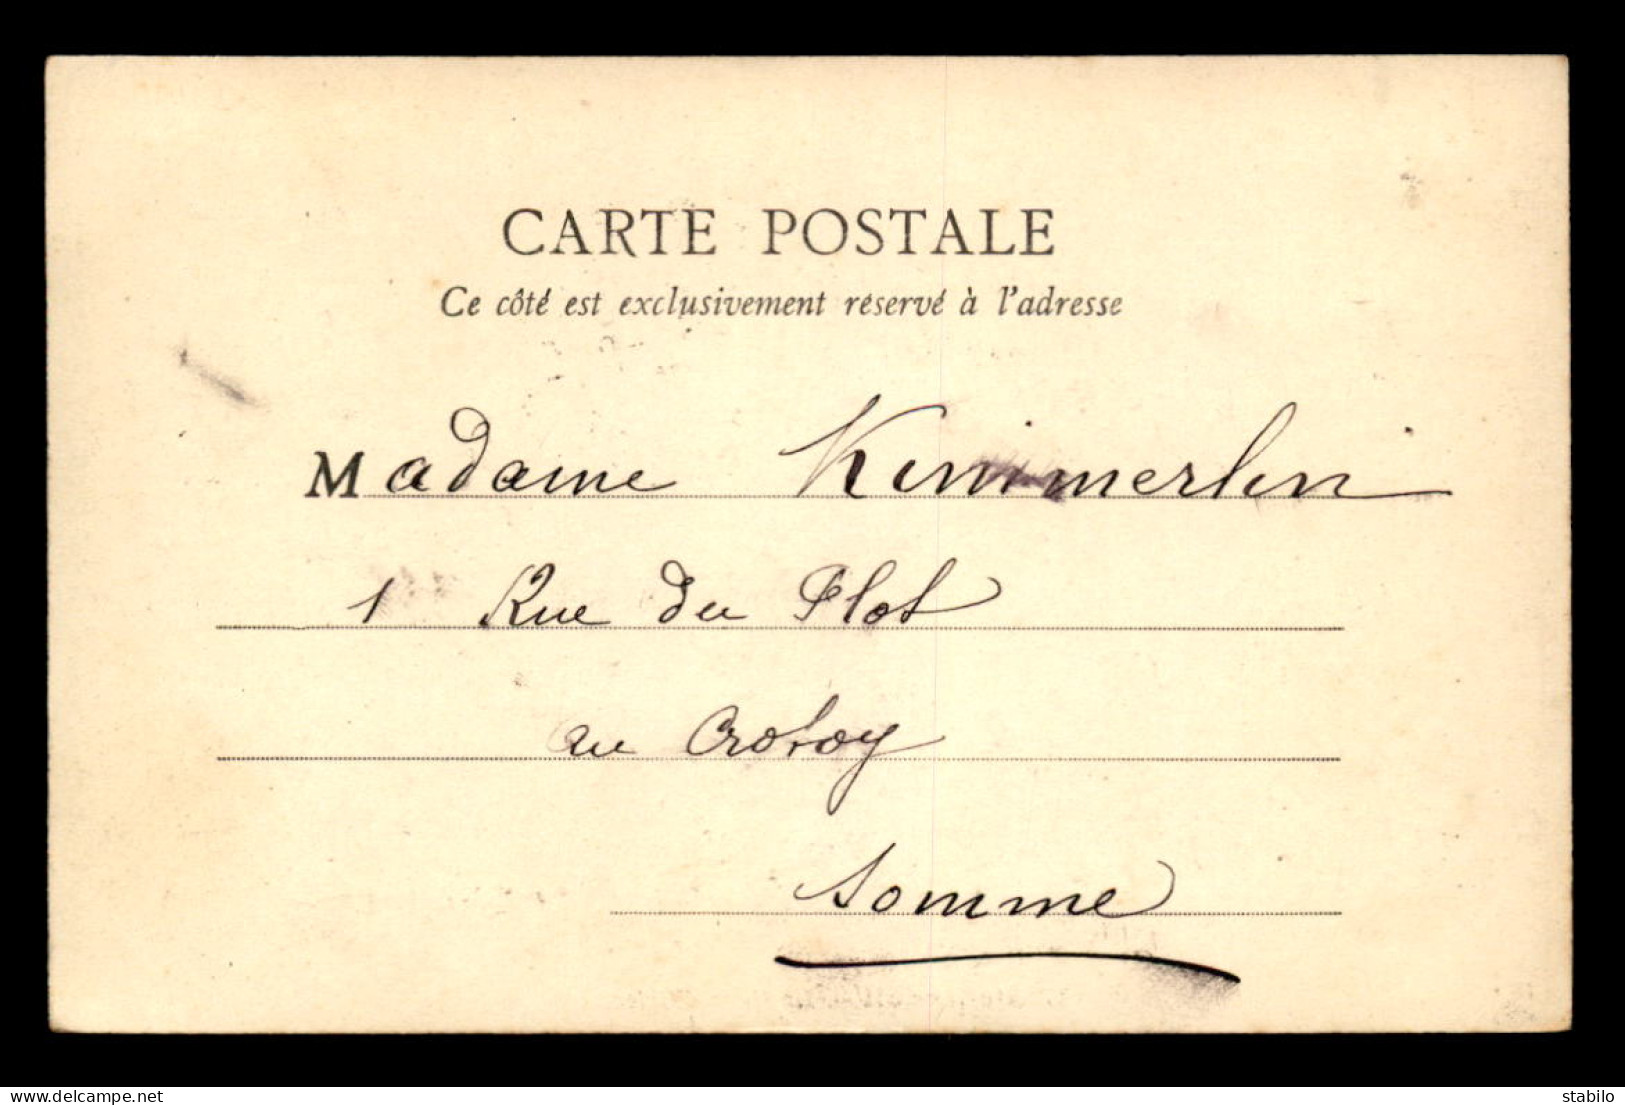 CARTE POSTALE
Ce côté est exclusivement réservé à l'adresse
Madame Kimmerlin
1 Rue du Flot
au Crotoy
Somme
delcampe.net
stabilo